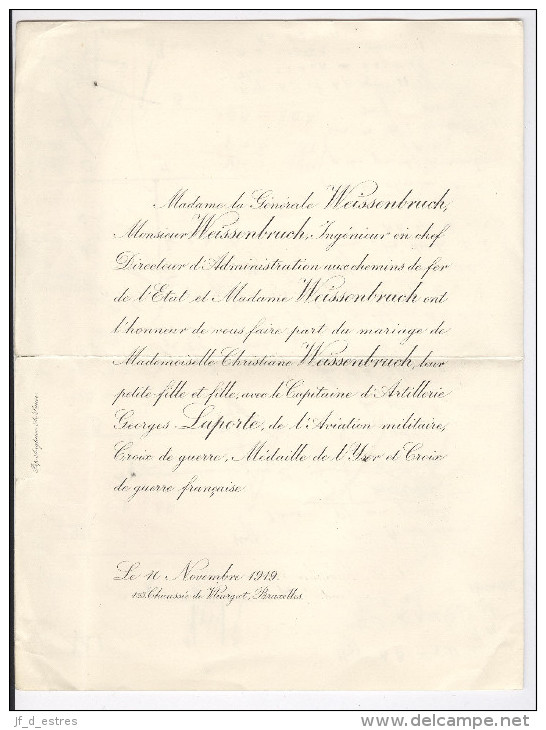 Madame la Générale Weissenbruch,
Monsieur Weissenbruch, Ingénieur en chef
Directeur d'Administration aux chemins de fer
de l'Etat et Madame Weissenbruch ont
l'honneur de vous faire part du mariage de
Mademoiselle Christiane Weissenbruch, leur
petite-fille et fille, avec le Capitaine d'Artillerie
Georges Laporte, de l'Aviation militaire,
Croix de guerre, Médaille de l'Yser et Croix
de guerre française.
Le 10 Novembre 1919.
Chaussée de Vleurgat, Bruxelles.
jf_d_estres
delcampe.net